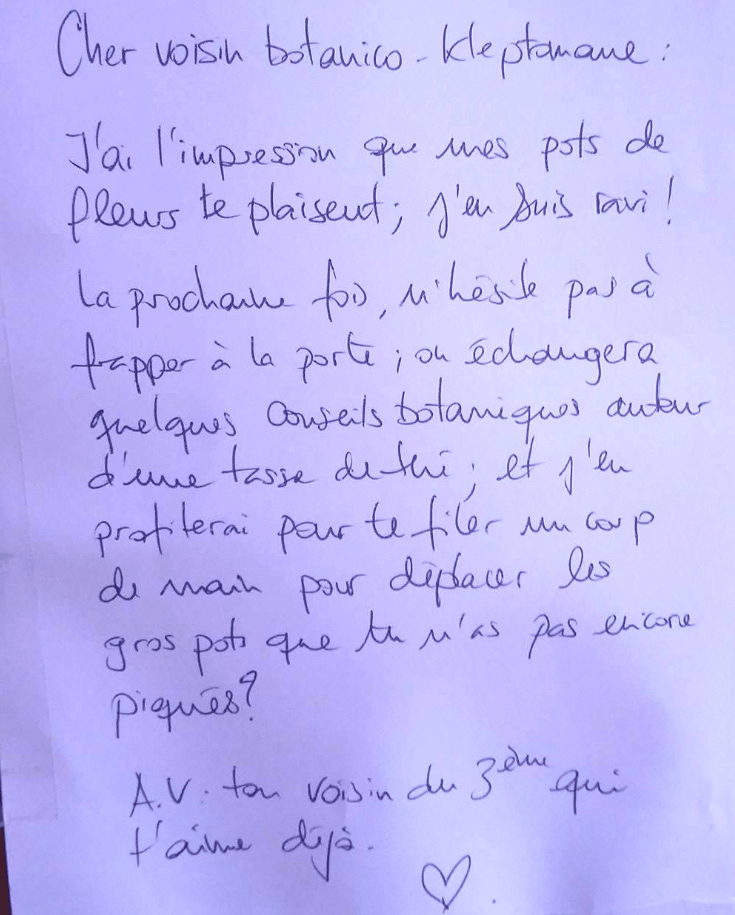 Cher voisin botanico-kleptomane :
J'ai l'impression que mes pots de
fleurs te plaisent ; j'en suis ravi !
La prochaine fois, n'hésite pas à
frapper à la porte ; on échangera
quelques conseils botaniques autour
d'une tasse de thé ; et j'en
profiterai pour te filer un coup
de main pour déplacer les
gros pots que tu n'as pas encore
piqués ?
A.V. ton voisin du 3ème qui
t'aime déjà.